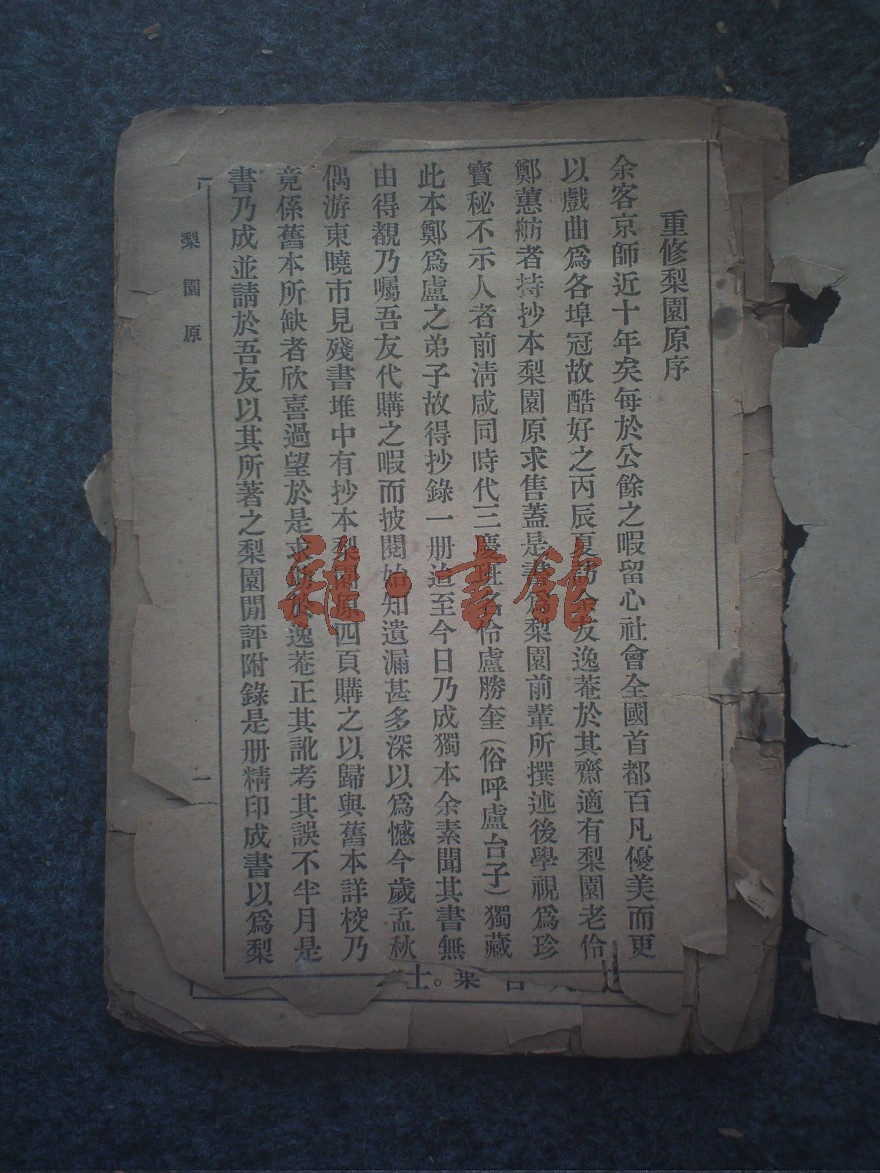 重修梨園原序
余客京師近十年矣每於公餘之暇留心社會全國首都百凡優美而更
以戲曲爲各埠冠故酷好之丙辰夏訪余友逸菴於其齋適有梨園老伶
鄭蕙舫者持抄本梨園原求售蓋是書爲梨園前輩所撰述後學視爲珍
寶秘不示人者前淸咸同時代三慶班名伶盧勝奎(俗呼盧台子)獨藏
此本鄭爲盧之弟子故得抄錄一册迨至今日乃成獨本余素聞其書無
由得覩乃囑吾友代購之暇而披閱始知遺漏甚多深以爲憾今歲孟秋
偶游東曉市見殘書堆中有抄本梨園原四頁購之以歸與舊本詳校乃
竟係舊本所缺者欣喜過望於是求逸菴正其訛考其誤不半月是
書乃成並請於吾友以其所著之梨園閒評附錄是册精印成書以爲梨
梨園原
一
雜·書館